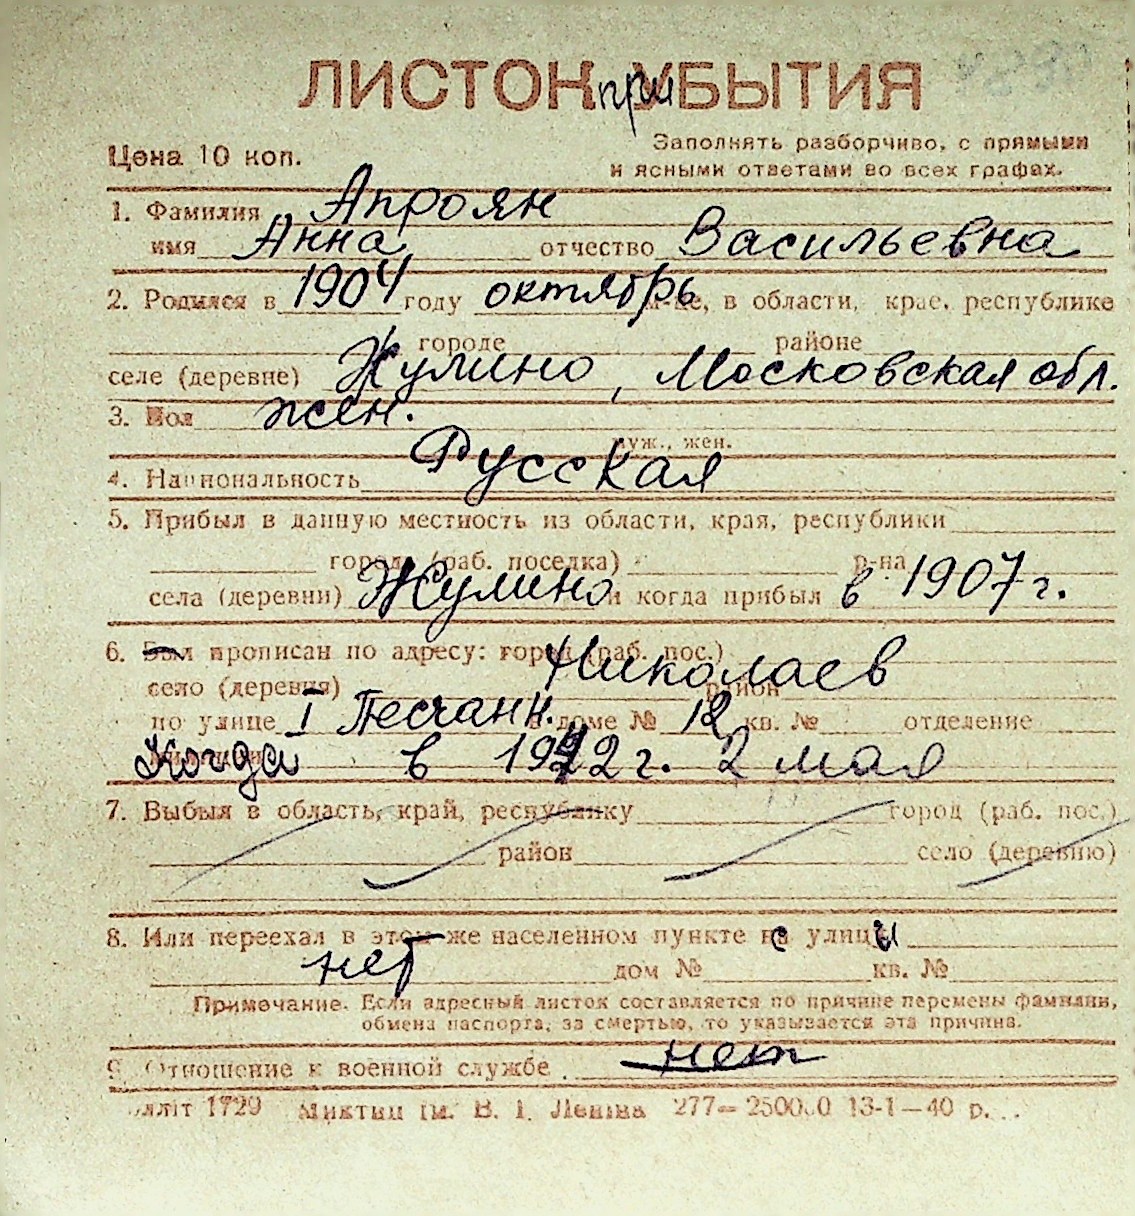 ЛИСТОК при УБЫТИЯ
Цена 10 коп.
Заполнять разборчиво, с прямыми
и ясными ответами во всех графах.
1. Фамилия Апроян
имя Анна отчество Васильевна
2. Родился в 1904 году октябрь м-це, в области, крае, республике
городе районе
селе (деревне) Жулино, Московская обл.
3. Пол жен.
муж., жен.
4. Национальность Русская
5. Прибыл в данную местность из области, края, республики
города (раб. поселка) р-на
села (деревни) Жулино и когда прибыл в 1907 г.
6. Был прописан по адресу: город (раб. пос.) Николаев
село (деревня) район
по улице I Песчанн. в доме № 12 кв. № отделение
милиции Когда в 1942 г. 2 мая
7. Выбыл в область, край, республику город (раб. пос.)
район село (деревню)
8. Или переехал в этом же населенном пункте с улицы
нет дом № кв. №
Примечание. Если адресный листок составляется по причине перемены фамилии,
обмена паспорта, за смертью, то указывается эта причина.
9. Отношение к военной службе нет
1729 ім. В. І. Леніна 277— 250000 13-1—40 р.